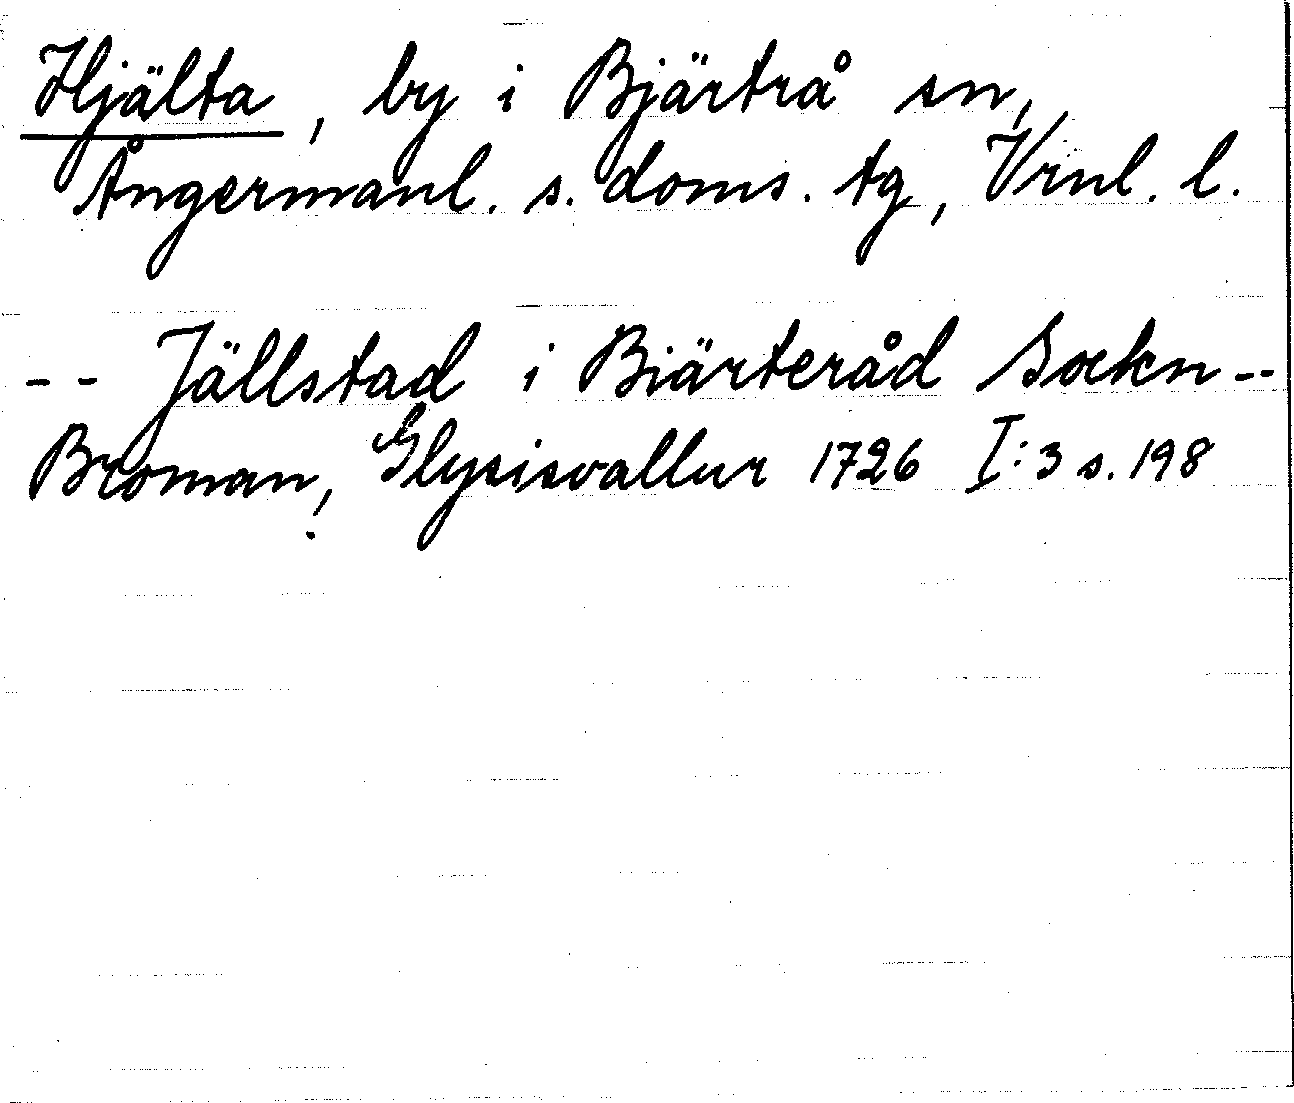 Hjälta, by i Bjärtrå sn,
Ångermanl. s. doms. tg, Vrnl. l.
-- Jällstad i Biärteråd Sockn --
Broman, Glysisvallur 1726 I:3 s. 198